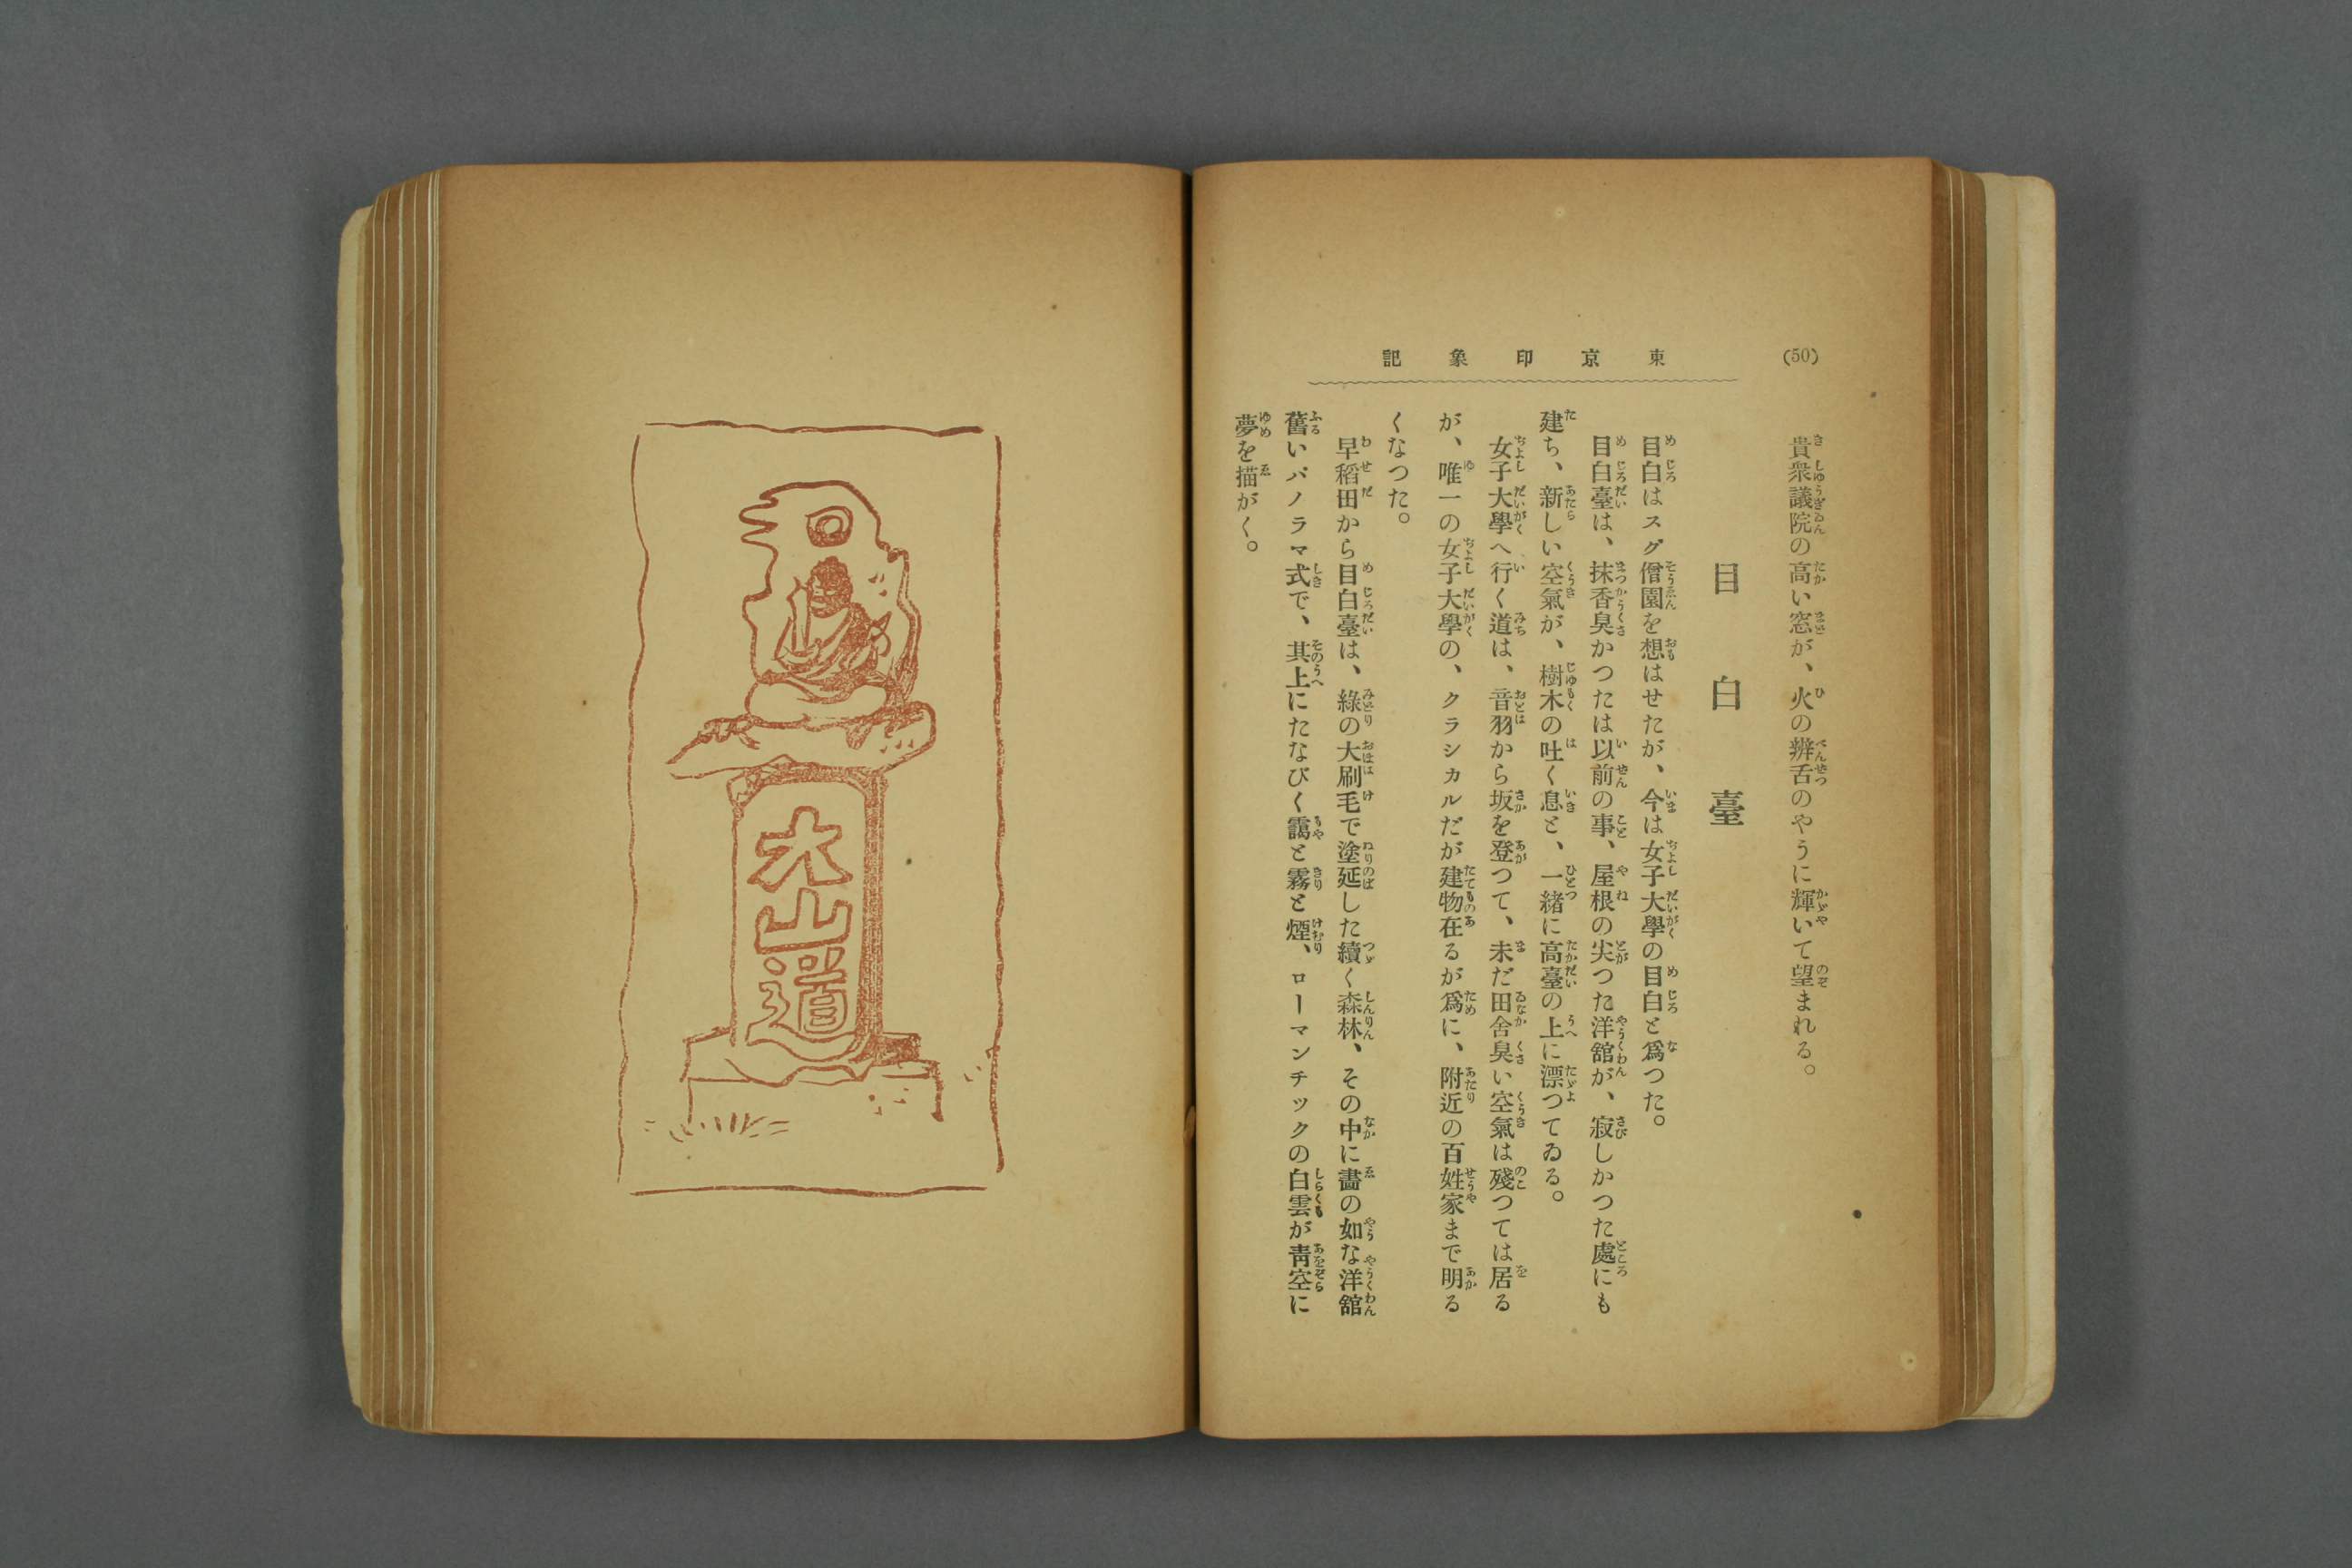 (50)
東京印象記
貴衆議院の高い窓が、火の辨舌のやうに輝いて望まれる。
目白臺
目白はスグ僧園を想はせたが、今は女子大學の目白と爲つた。
目白臺は、抹香臭かつたは以前の事、屋根の尖つた洋舘が、寂しかつた處にも
建ち、新しい空氣が、樹木の吐く息と、一緒に高臺の上に漂つてゐる。
女子大學へ行く道は、音羽から坂を登つて、未だ田舍臭い空氣は殘つては居る
が、唯一の女子大學の、クラシカルだが建物在るが爲に、附近の百姓家まで明る
くなつた。
早稻田から目白臺は、綠の大刷毛で塗延した續く森林、その中に畵の如な洋舘
舊いパノラマ式で、其上にたなびく靄と霧と煙、ローマンチックの白雲が靑空に
夢を描がく。
大山道